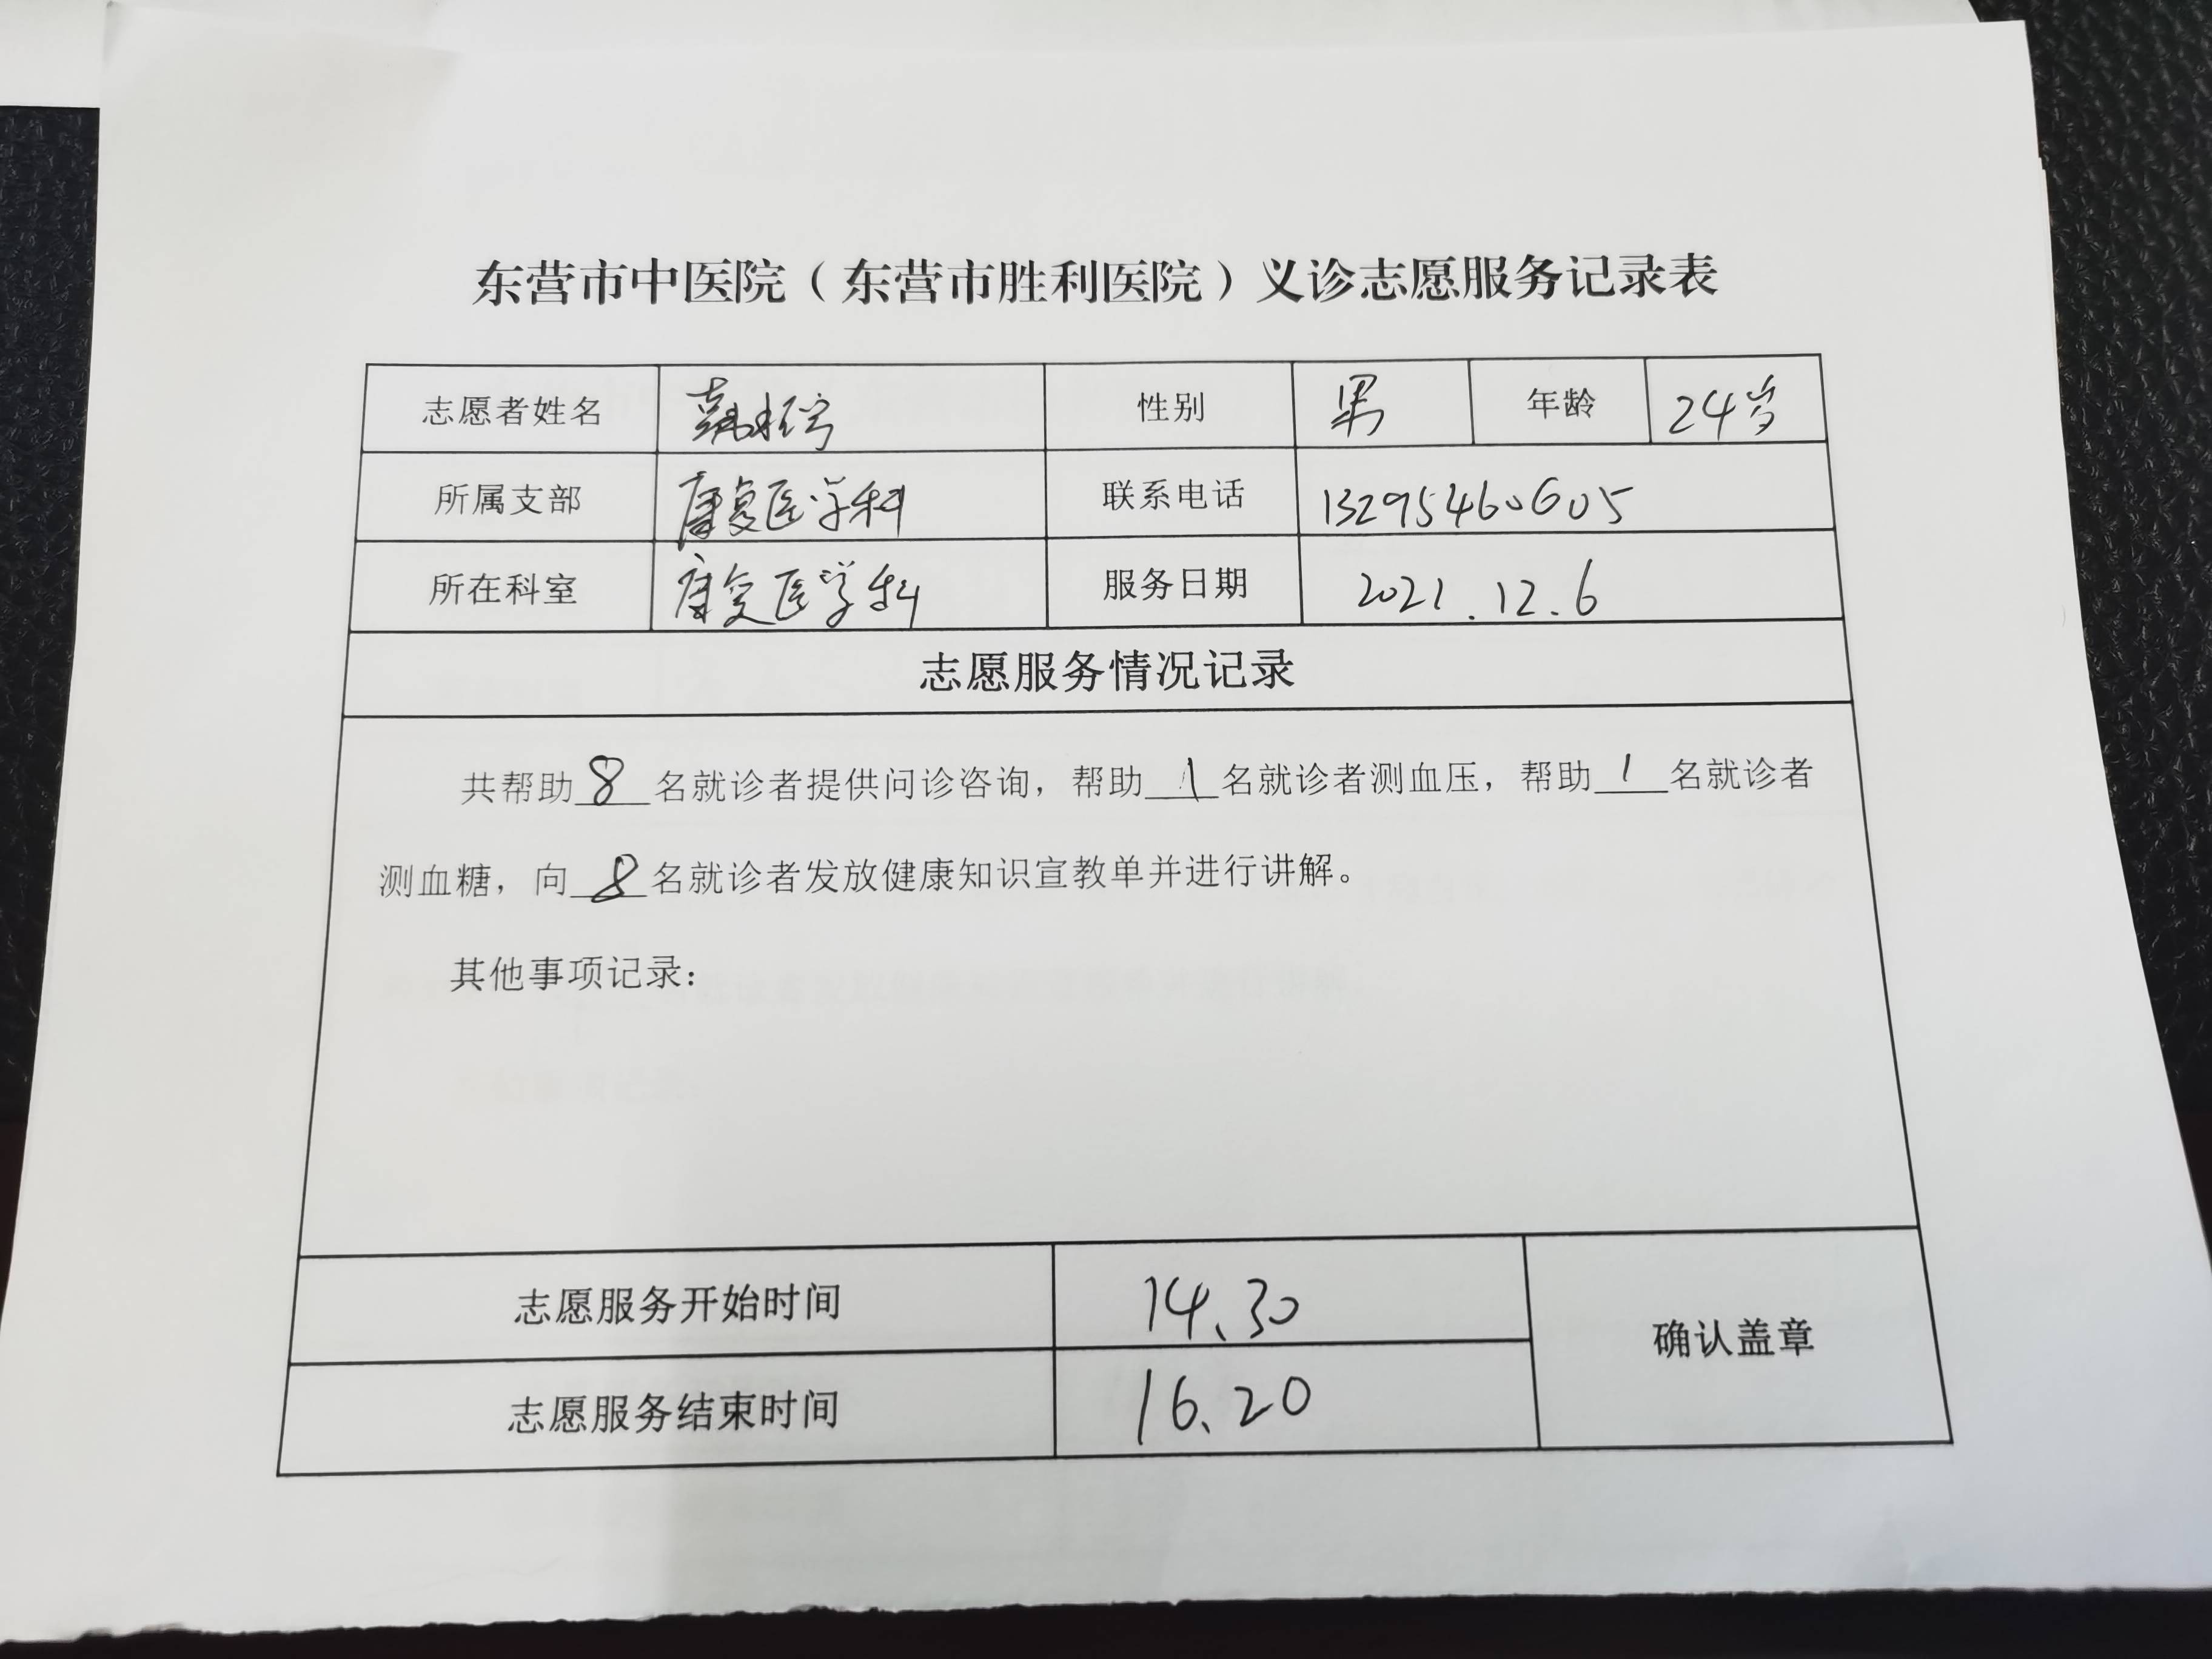 东营市中医院（东营市胜利医院）义诊志愿服务记录表
志愿者姓名 性别 男 年龄 24岁
所属支部 康复医学科 联系电话 13295460605
所在科室 康复医学科 服务日期 2021.12.6
志愿服务情况记录
共帮助8名就诊者提供问诊咨询，帮助1名就诊者测血压，帮助1名就诊者
测血糖，向8名就诊者发放健康知识宣教单并进行讲解。
其他事项记录：
志愿服务开始时间 14、30 确认盖章
志愿服务结束时间 16、20